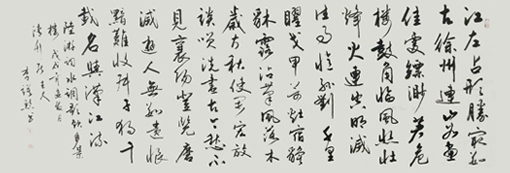 江左占形勝最數
古徐州連山如畫
佳處縹渺著危
樓鼓角臨風悲壯
烽火連空明滅
往事憶孫劉千里
曜戈甲萬灶宿貔
貅露沾草風落木
歲方秋使君宏放
談笑洗盡古今愁不
見襄陽登覽磨
滅遊人無數遺恨
黯難收叔子獨千
載名與漢江流
陸游詞水調歌頭多景
樓戊戌年
主人
李